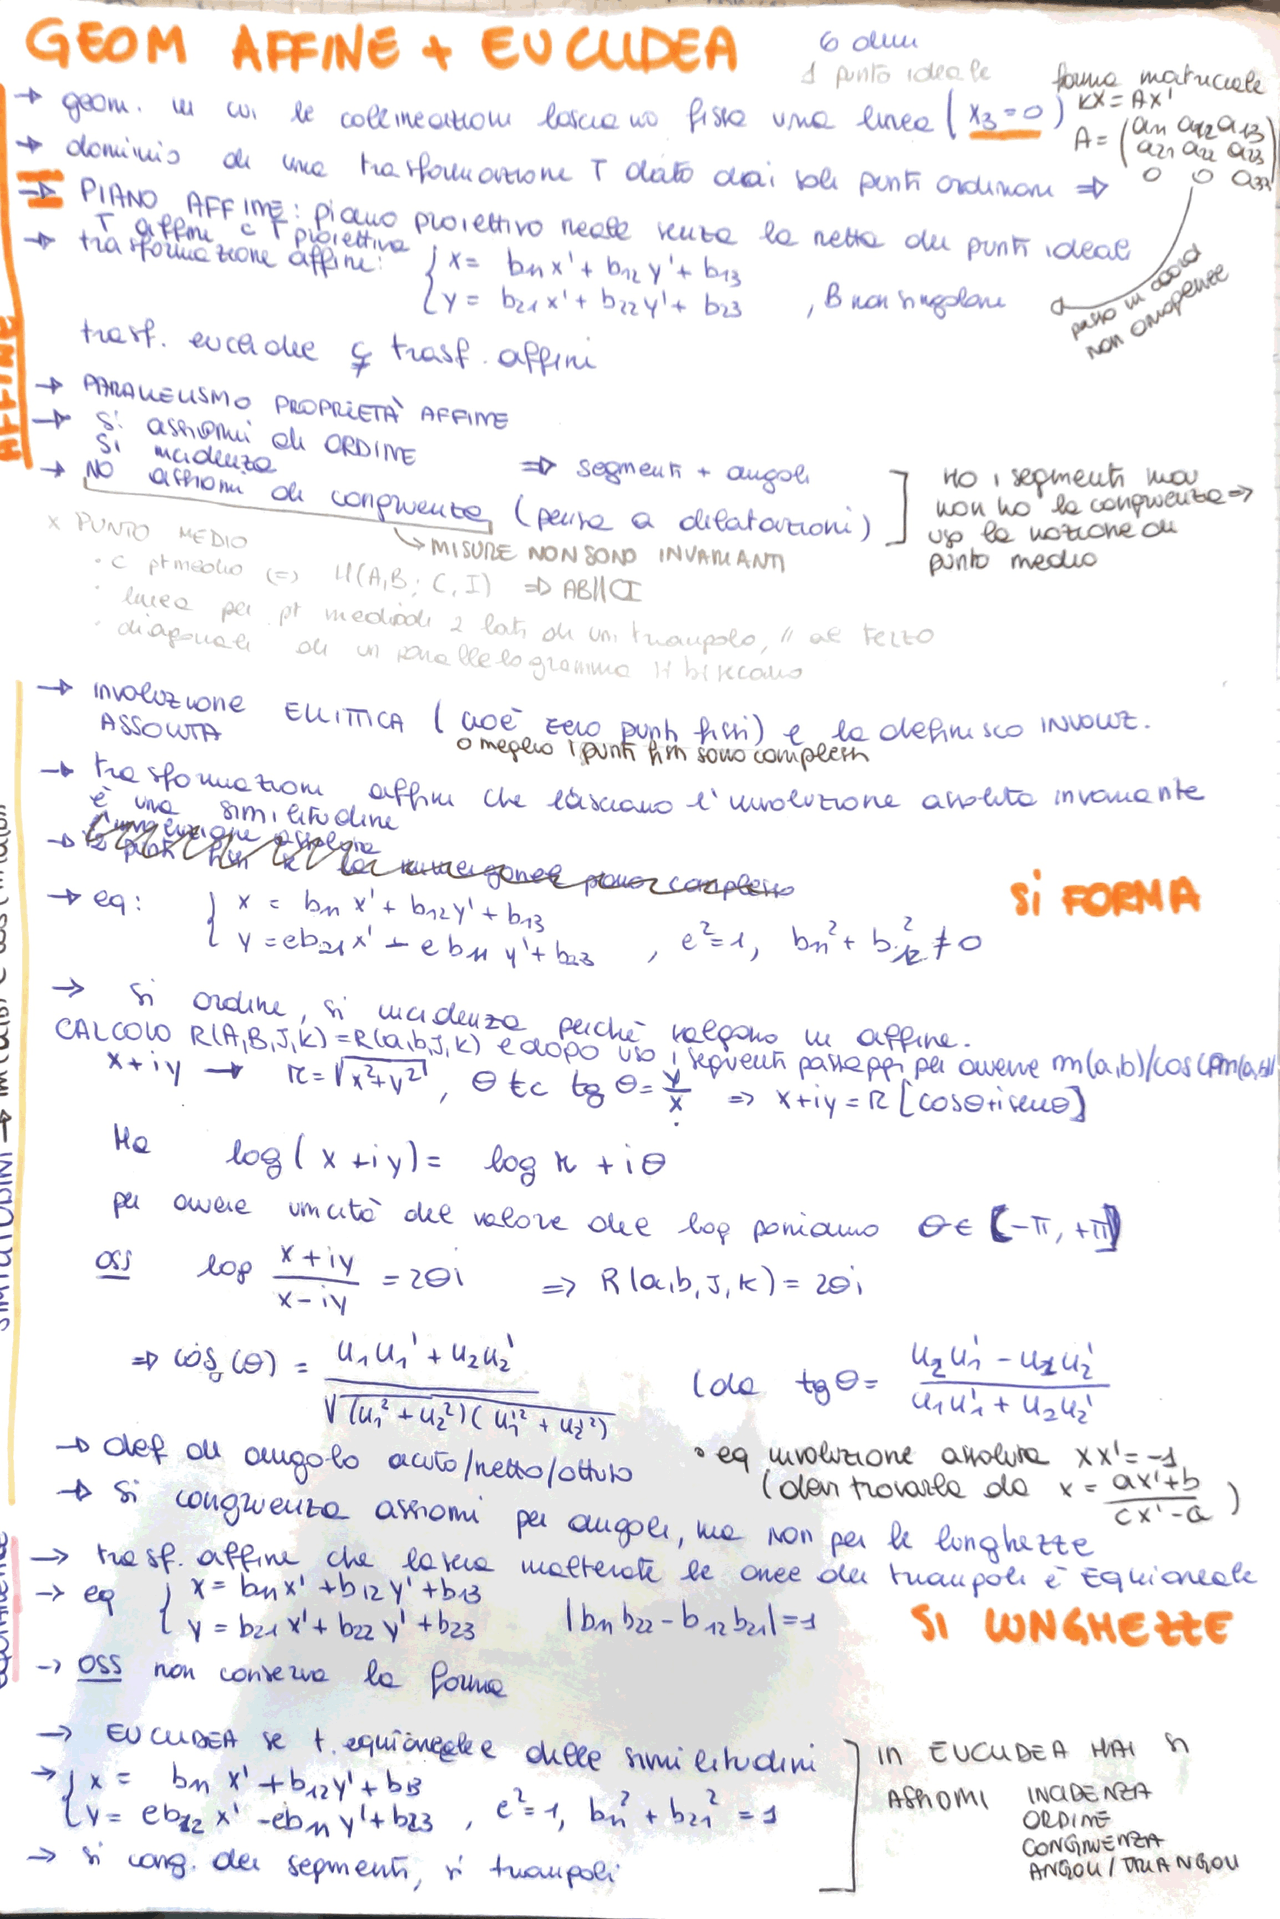 GEOM AFFINE + EUCLIDEA
6 dim
1 punto ideale
forma matriciale
kX = AX'
A = (a11 a12 a13
a21 a22 a23
0 0 a33)
→ geom. in cui le collineazioni lasciano fissa una linea (x3=0)
→ dominio di una trasformazione T dato dai soli punti ordinari ⇒
passo in coord non omogenee
→ PIANO AFFINE: piano proiettivo reale senza la retta dei punti ideali
T affini ⊂ T proiettiva
→ trasformazione affini: { x = b11 x' + b12 y' + b13
y = b21 x' + b22 y' + b23 , B non singolare
trasf. euclidee ⊊ trasf. affini
AFFINE
→ PARALLELISMO PROPRIETÀ AFFINE
→ Sì assiomi di ORDINE
Sì incidenza ⇒ segmenti + angoli
→ NO assiomi di congruenza (pensa a dilatazioni)
↳ MISURE NON SONO INVARIANTI
Ho i segmenti ma
non ho la congruenza ⇒
uso la nozione di
punto medio
x PUNTO MEDIO
• C pt medio ⇔ H(A,B; C,I) ⇒ AB//CI
• linea per pt medi di 2 lati di un triangolo, // al terzo
• diagonali di un parallelogramma si bisecano
→ involuzione ELLITTICA (cioè zero punti fissi) e la definisco INVOLUZ.
ASSOLUTA
o meglio i punti fissi sono complessi
→ trasformazioni affini che lasciano l'involuzione assoluta invariante
è una similitudine
→ eq: { x = b11 x' + b12 y' + b13
y = eb21 x' - eb11 y' + b23 , e²=1, b11² + b12² ≠ 0
SI FORMA
→ si ordine, si incidenza perchè valgono in affine.
CALCOLO R(A,B,J,K) = R(a,b,J,K) e dopo uso i seguenti passaggi per avere m(a,b)/cos(m(a,b))
x+iy → r = √x²+y² , θ tc tg θ = y/x ⇒ x+iy = R [cosθ + i senθ]
Ho log(x+iy) = log r + iθ
per avere unicità del valore del log poniamo θ ∈ (-π, +π]
OSS log (x+iy)/(x-iy) = 2θi ⇒ R(a,b,J,K) = 2θi
⇒ cos(θ) = (u1u1' + u2u2')/√(u1²+u2²)(u1'²+u2'²) (da tgθ = (u2u1' - u1u2')/(u1u1' + u2u2')
→ def di angolo acuto/retto/ottuso
• eq involuzione assoluta xx' = -1
(devi trovarla da x = (ax'+b)/(cx'-a))
→ Si congruenza assiomi per angoli, ma NON per le lunghezze
→ trasf. affine che lascia inalterate le aree dei triangoli è EQUIAREALE
→ eq { x = b11 x' + b12 y' + b13
y = b21 x' + b22 y' + b23 |b11 b22 - b12 b21| = 1
SI LUNGHEZZE
→ OSS non conserva la forma
→ EUCLIDEA se t. equiareale e delle similitudini
→ { x = b11 x' + b12 y' + b13
y = eb12 x' - eb11 y' + b23 , e²=1, b11² + b21² = 1
→ si cong. dei segmenti, si triangoli
IN EUCLIDEA HAI SI
ASSIOMI INCIDENZA
ORDINE
CONGRUENZA
ANGOLI/TRIANGOLI